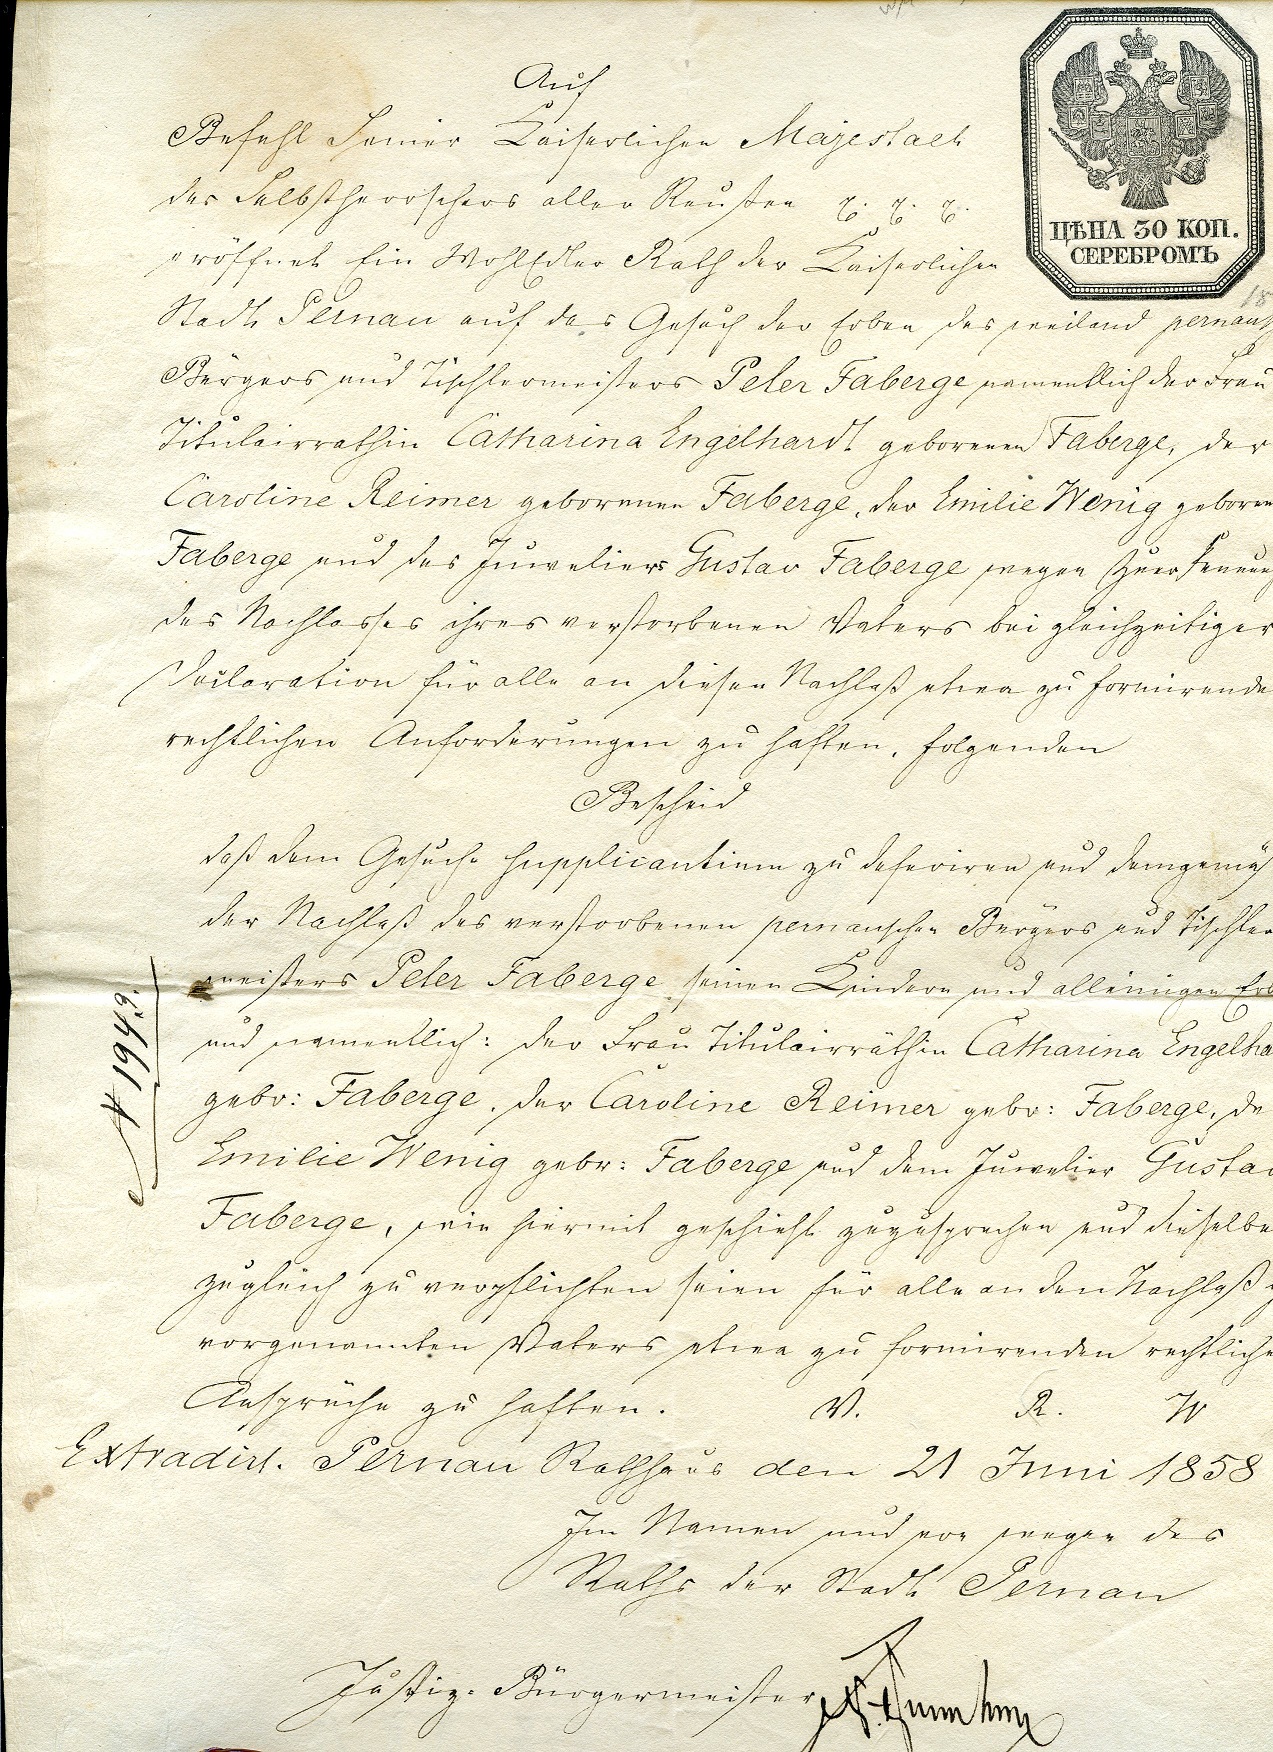 Auf
Befehl Seiner Kaiserlichen Majestaet
des Selbstherrschers aller Reußen ꝛc. ꝛc. ꝛc.
eröffnet Ein WohlEdler Rath der Kaiserlichen
Stadt Pernau auf das Gesuch der Erben des weiland pernausch
Bürgers und Tischlermeisters Peter Faberge namentlich der Frau
Titulairräthin Catharina Engelhardt geborenen Faberge, der
Caroline Reimer geborenen Faberge, der Emilie Wenig geboren
Faberge und des Juweliers Gustav Faberge wegen Zuerkennung
des Nachlasses ihres verstorbenen Vaters bei gleichzeitiger
Declaration für alle an diesen Nachlaß etwa zu formirende
rechtlichen Anforderungen zu haften, folgenden
Bescheid
daß dem Gesuche Supplicantium zu deferiren und demgemäß
der Nachlaß des verstorbenen pernauschen Bürgers und Tischler
meisters Peter Faberge seinen Kindern und alleinigen Erb
und namentlich: der Frau Titulairräthin Catharina Engelha
gebr: Faberge, der Caroline Reimer gebr: Faberge, de
Emilie Wenig gebr: Faberge und dem Juwelier Gustav
Faberge, wie hiermit geschieht zuzusprechen und dieselbe
zugleich zu verpflichten seien für alle an den Nachlaß
vorgenannten Vaters etwa zu formirenden rechtliche
Ansprüche zu haften. V. R. W
Extradirt. Pernau Rathhaus den 21 Juni 1858
Im Namen und von wegen des
Raths der Stadt Pernau
Justiz-Bürgermeister
№ 1949.
ЦѢНА 30 КОП.
СЕРЕБРОМЪ